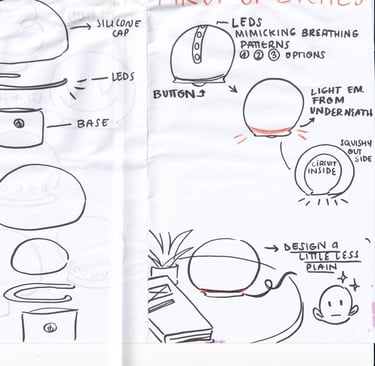 SILICONE
CAP
LEDS
BASE
LEDS
MIMICKING BREATHING
PATTERNS
1 2 3 OPTIONS
BUTTON
LIGHT EM.
FROM
UNDERNEATH
SQUISHY
OUT
SIDE
CIRCUIT
INSIDE
DESIGN A
LITTLE LESS
PLAIN